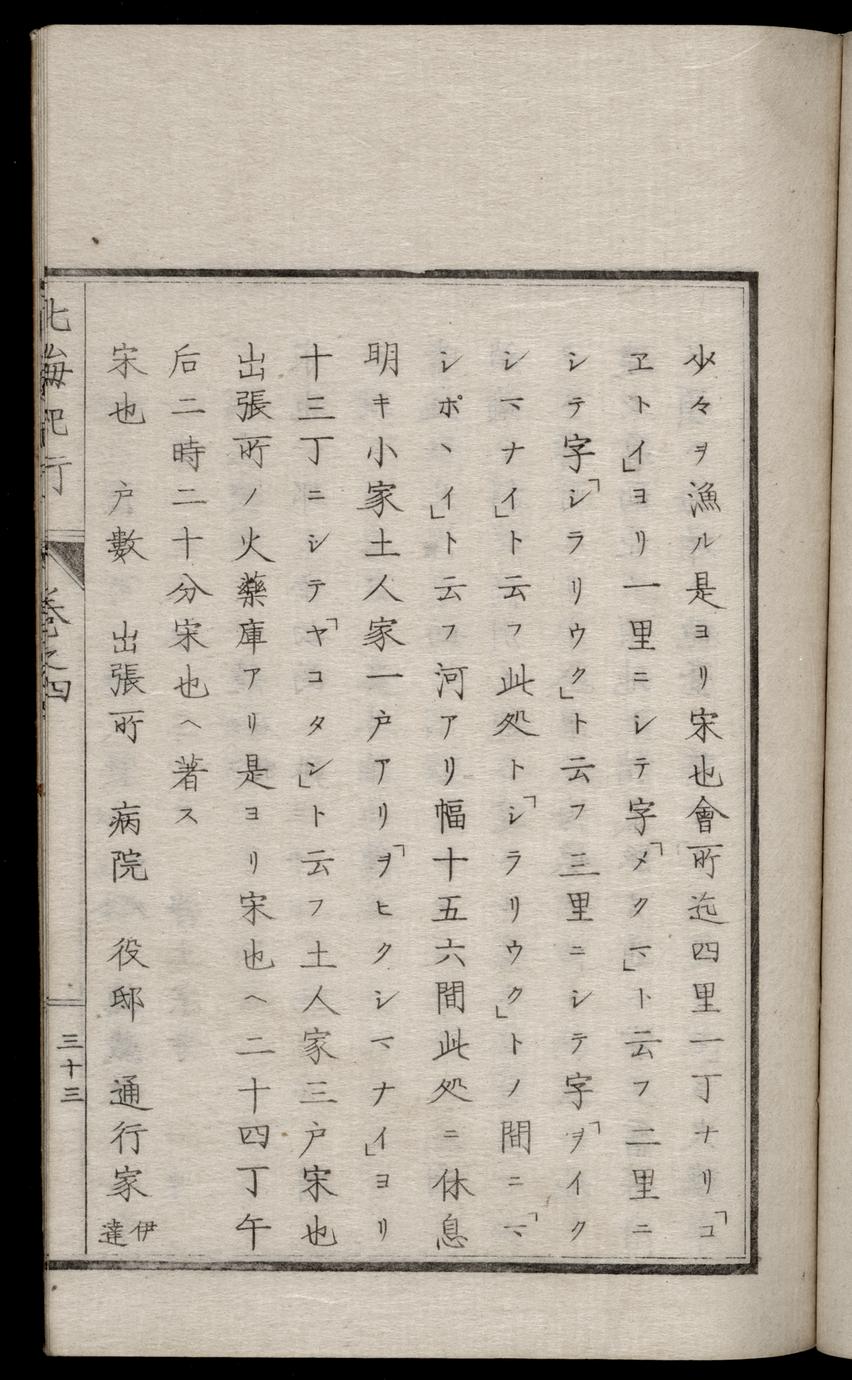 少々ヲ漁ル是ヨリ宋也會所迄四里一丁ナリ「コ
ヱトイ」ヨリ一里ニシテ字「メクマ」ト云フ二里ニ
シテ字「シラリウク」ト云フ三里ニシテ字「ヲイク
シマナイ」ト云フ此処ト「シラリウク」トノ間ニ「マ
シポヽイ」ト云フ河アリ幅十五六間此処ニ休息
明キ小家土人家一戸アリ「ヲヒクシマナイ」ヨリ
十三丁ニシテ「ヤコタン」ト云フ土人家三戸宋也
出張所ノ火藥庫アリ是ヨリ宋也ヘ二十四丁午
后二時二十分宋也ヘ著ス
宋也 戸數 出張所 病院 役邸 通行家 伊達
北海紀行 巻之四 三十三